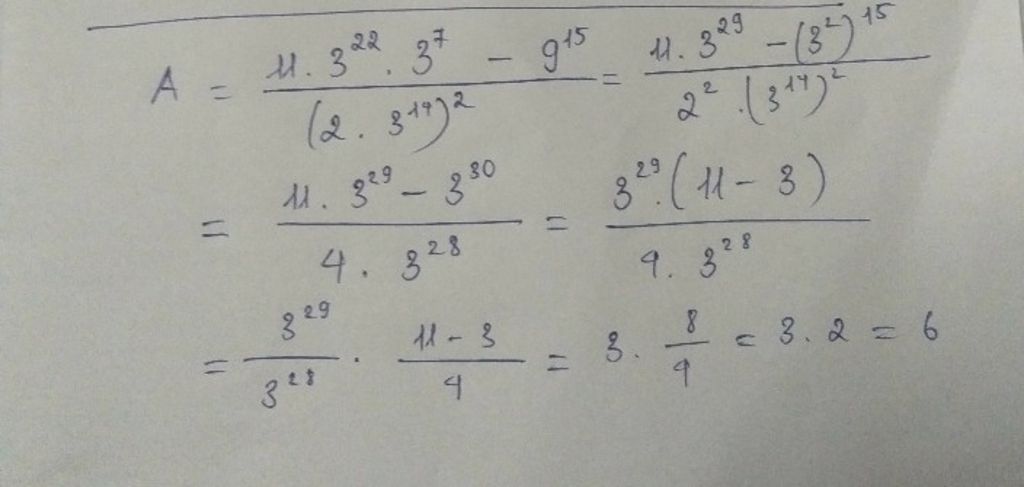 A = \frac{11 . 3^{22} . 3^7 - 9^{15}}{(2 . 3^{14})^2} = \frac{11 . 3^{29} - (3^2)^{15}}{2^2 . (3^{14})^2}
= \frac{11 . 3^{29} - 3^{30}}{4 . 3^{28}} = \frac{3^{29} . (11 - 3)}{4 . 3^{28}}
= \frac{3^{29}}{3^{28}} . \frac{11 - 3}{4} = 3 . \frac{8}{4} = 3 . 2 = 6